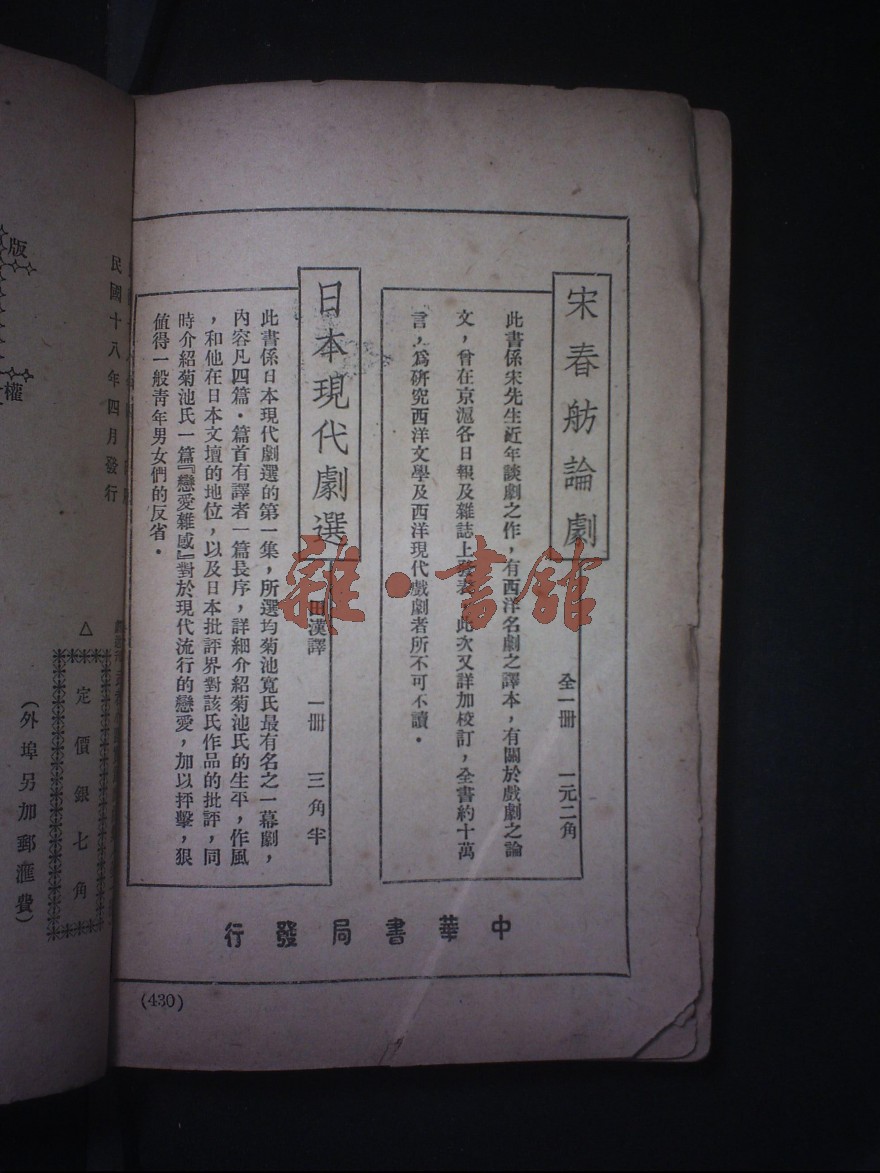 宋春舫論劇
全一冊　一元二角
此書係宋先生近年談劇之作，有西洋名劇之譯本，有關於戲劇之論
文，曾在京滬各日報及雜誌上發表，此次又詳加校訂，全書約十萬
言，爲研究西洋文學及西洋現代戲劇者所不可不讀．
日本現代劇選
田漢譯　一冊　三角半
此書係日本現代劇選的第一集，所選均菊池寬氏最有名之一幕劇，
內容凡四篇．篇首有譯者一篇長序，詳細介紹菊池氏的生平，作風
，和他在日本文壇的地位，以及日本批評界對該氏作品的批評，同
時介紹菊池氏一篇『戀愛雜感』對於現代流行的戀愛，加以抨擊，狠
値得一般靑年男女們的反省．
中華書局發行
(430)
雜·書館
民國十八年四月發行
版
權
△
定價銀七角
（外埠另加郵滙費）